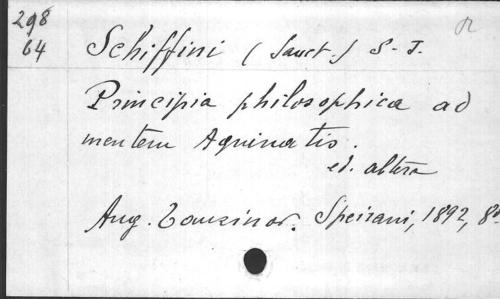 298
64
Schiffini (Sanct.) S-J.
Principia philosophica ad
mentem Aquinatis.
ed. altera
Aug. Taurinor. Speirani, 1892, 8º